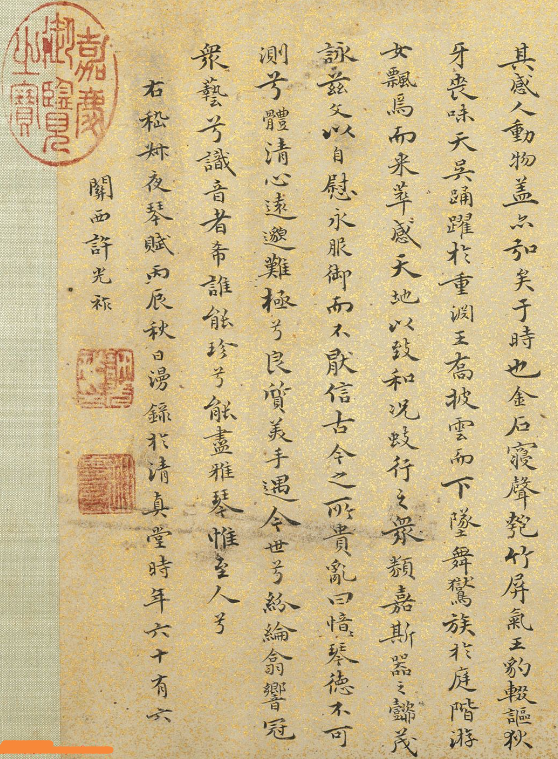 其感人動物盖亦弘矣于時也金石寢聲匏竹屏氣王豹輟謳狄
牙喪味天吳踊躍於重淵王喬披雲而下墜舞鸑族於庭階游
女飄焉而来萃感天地以致和况蚑行之衆類嘉斯器之懿茂
詠茲文以自慰永服御而不厭信古今之所貴亂曰愔愔琴德不可
測兮體清心遠邈難極兮良質美手遇今世兮紛綸翕響冠
衆藝兮識音者希誰能珍兮能盡雅琴惟至人兮
右嵇叔夜琴賦丙辰秋日漫錄於清真堂時年六十有六
關西許光祚
嘉慶御覽之寶